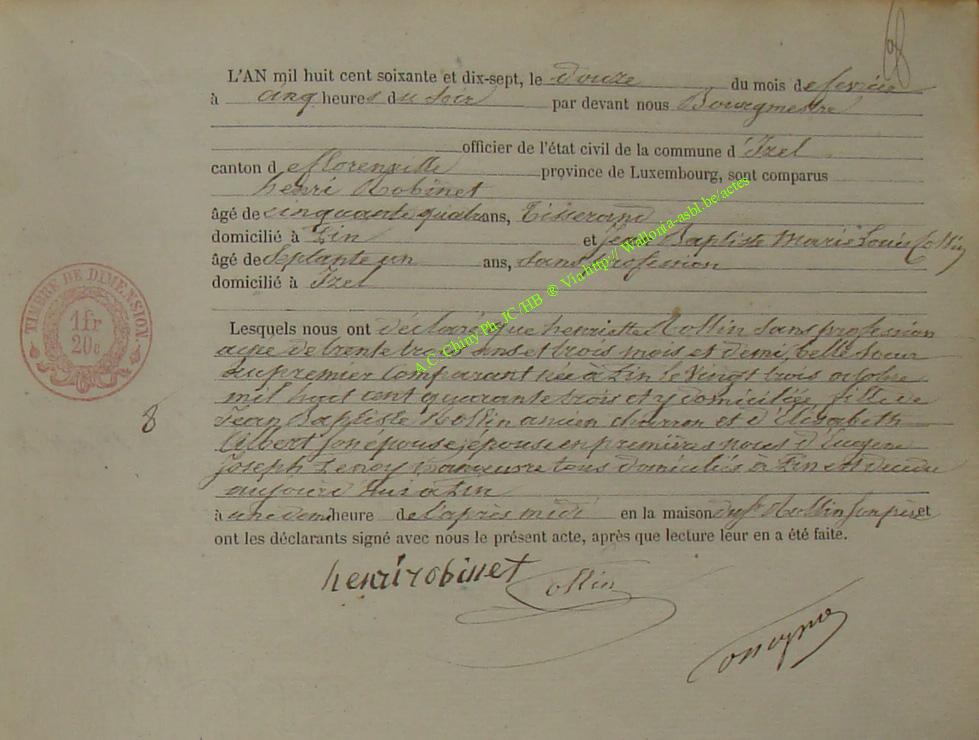 L'AN mil huit cent soixante et dix-sept, le douze du mois de fevrier
à cinq heures du soir par devant nous Bourgmestre
officier de l'état civil de la commune d'Izel
canton de florenville province de Luxembourg, sont comparus
henri Robinet
âgé de cinquante quatre ans, Tisserand
domicilié à Pin et Jean Baptiste Marie Louis Collin
âgé de Septante un ans, sans profession
domicilié à Izel
Lesquels nous ont déclaré que henriette Rollin sans profession
agée de trente trois ans et trois mois et demi, belle soeur
du premier Comparant née à Pin le Vingt trois octobre
mil huit cent quarante trois et y domiciliée, fille de
Jean Baptiste Rollin ancien charron et d'Elisabeth
Gilbert son épouse, épouse en premières noces d'Eugene
Joseph Lenoy manoeuvre tous domiciliés à Pin est décédée
aujourd'hui à Pin
à une demi heure de l'après midi en la maison du sr Rollin son père et
ont les déclarants signé avec nous le présent acte, après que lecture leur en a été faite.
henri robinet Collin
TIMBRE DE DIMENSION.
1fr
20c
8
A.C. Chiny Ph. JC/HB ® Via http://Wallonia-asbl.be/actes